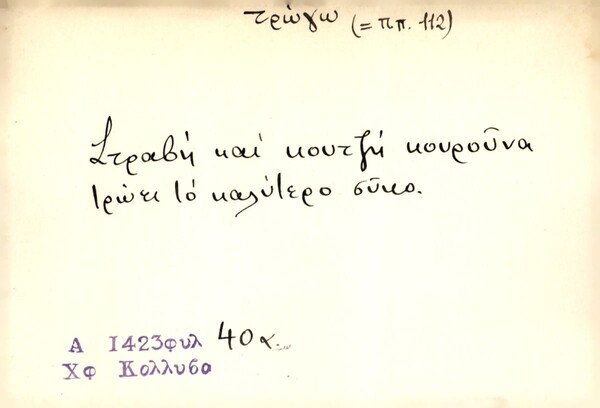 τρώγω (= ππ. 112)
Στραβή καί κουτζή κουροῦνα
τρώει τό καλύτερο σῦκο.
Α 1423φυλ 40α.
Χφ Κολλυβα